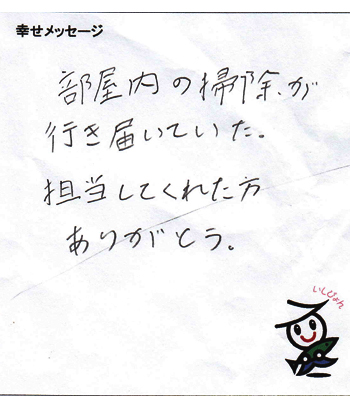 幸せメッセージ
部屋内の掃除が
行き届いていた。
担当してくれた方
ありがとう。
いしぴょん